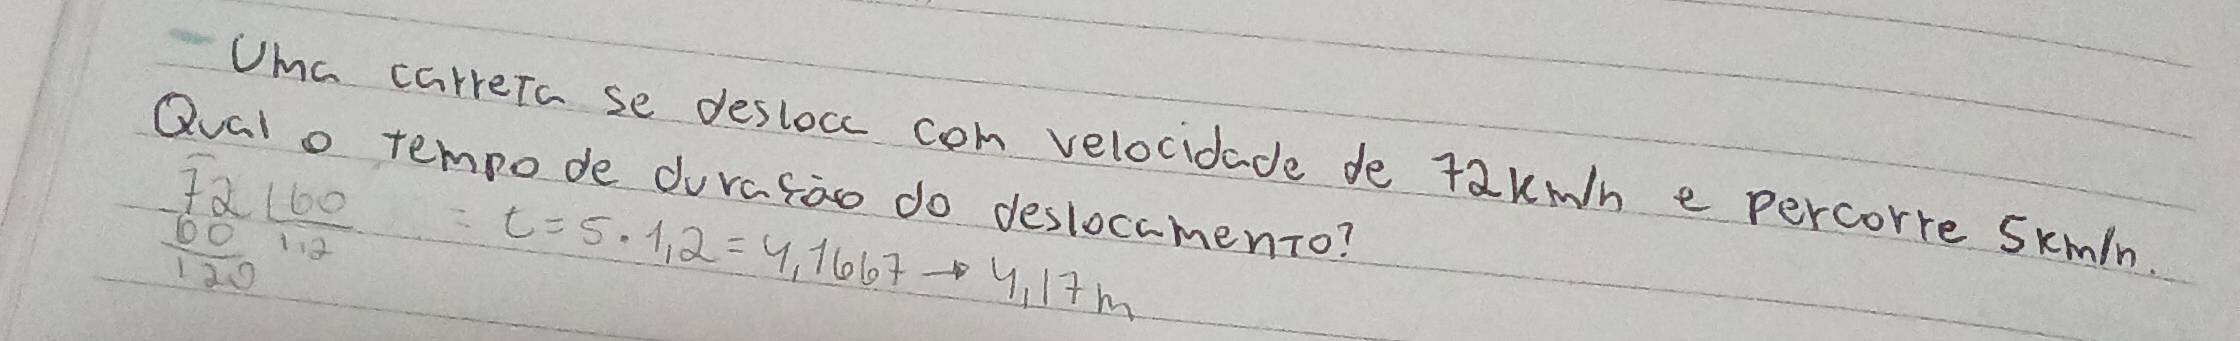 - Uma carreta se desloca com velocidade de 72km/h e percorre 5km/h.
Qual o tempo de duração do deslocamento?
72 | 60
60 1,2
120
= t = 5 . 1,2 = 4,1667 → 4,17m